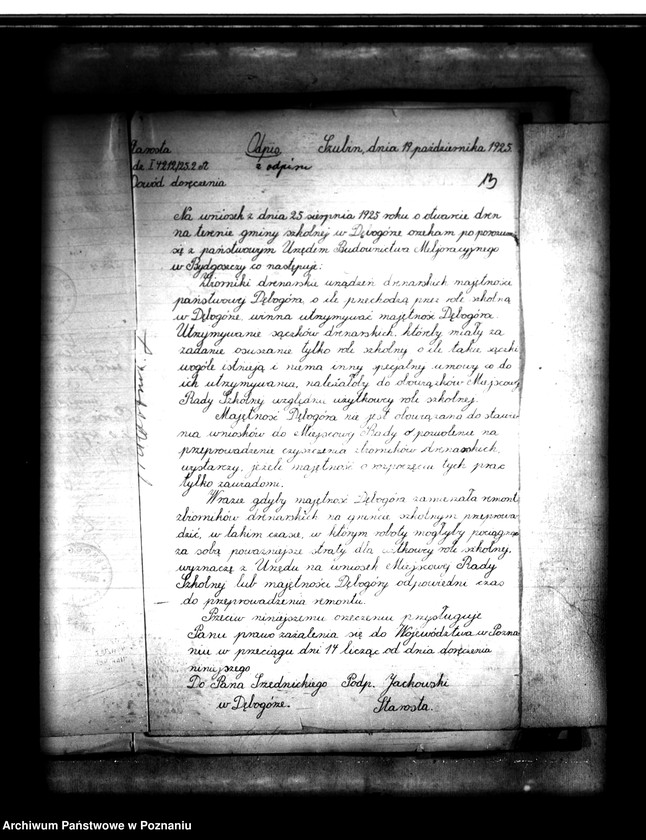 Starosta Odpis Szubin, dnia 19 października 1925
z odpisu
Dowód doręczenia
13
Na wniosek z dnia 25 sierpnia 1925 roku o otwarcie dren
na terenie gminy szkolnej w Dębogóne orzekam po porozum
się z państwowym Urzędem Budownictwa Meljoracyjnego
w Bydgoszczy co następuje:
Zbiorniki drenarsku urządzeń drenarskich majętności
państwowej Dębogóra, o ile przechodzą przez rolę szkolną
w Dębogóne, winna utrzymywać majętność Dębogóra.
Utrzymywanie sączków drenarskich, któreby miały za
zadanie osuszanie tylko role szkolnej o ile takie sączki
wogóle istnieją i niema innej specjalnej umowy co do
ich utrzymywania, należałoby do obowiązków Miejscowej
Rady Szkolnej względnie użytkowcy role szkolnej.
Majętność Dębogóra nie jest obowiązana do stawia
nia wniosków do Miejscowej Rady o pozwolenie na
przeprowadzenie czyszczenia zbiorników drenarskich,
wystarczy, jeżele majętność o rozpoczęciu tych prac
tylko zawiadomi.
Wrazie gdyby majętność Dębogóra zamierzała remont
zbiorników drenarskich na gruncie szkolnym przeprowa
dzić, w takim czasie, w którym roboty mogłyby pociągnąć
za sobą poważniejsze straty dla użytkowcy role szkolnej,
wyznaczę z Urzędu na wniosek Miejscowej Rady
Szkolnej lub majętności Dębogóry odpowiedni czas
do przeprowadzenia remontu.
Przeciw niniejszemu orzeczeniu przysługuje
Panu prawo zażalenia się do Województwa w Pozna
niu w przeciągu dni 14 licząc od dnia doręczenia
niniejszego
Do Pana Szednickiego Podp. Jackowski
w Dębogóne. Starosta.
Archiwum Państwowe w Poznaniu